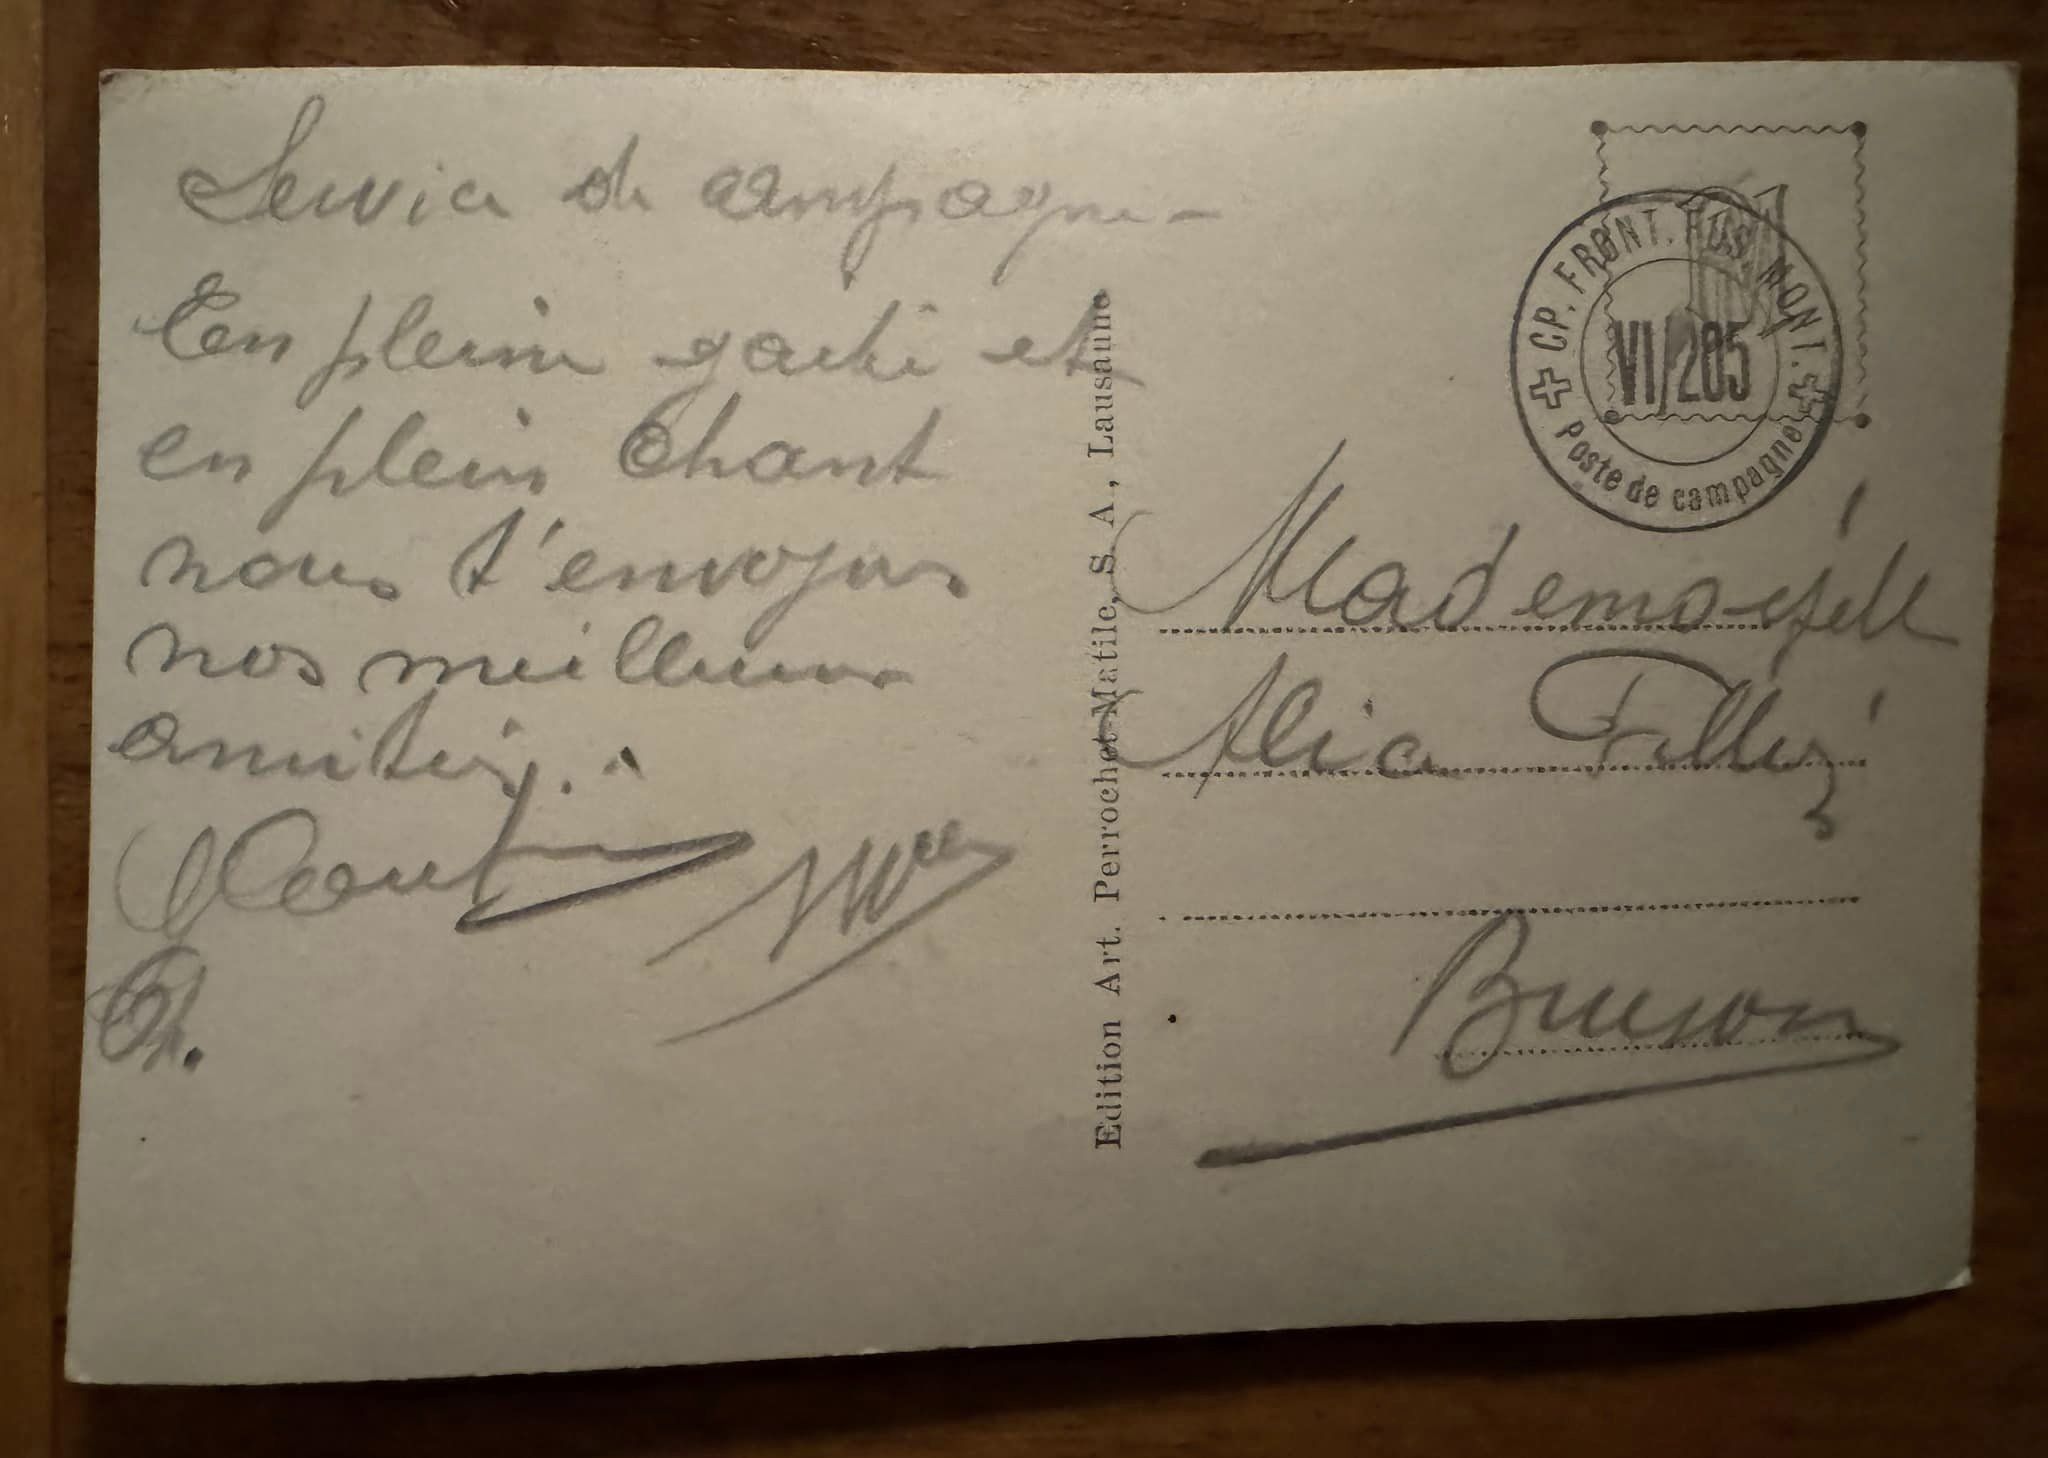 Service de campagne -
En pleine gaité et
en plein chant
nous t'envoyons
nos meilleures
amitiés..
Edition Art. Perrochet-Matile, S. A., Lausanne
+ CP. FRONT. FUS. MONT. +
VI/205
Poste de campagne
Mademoiselle
Alice Fellay
Bruson